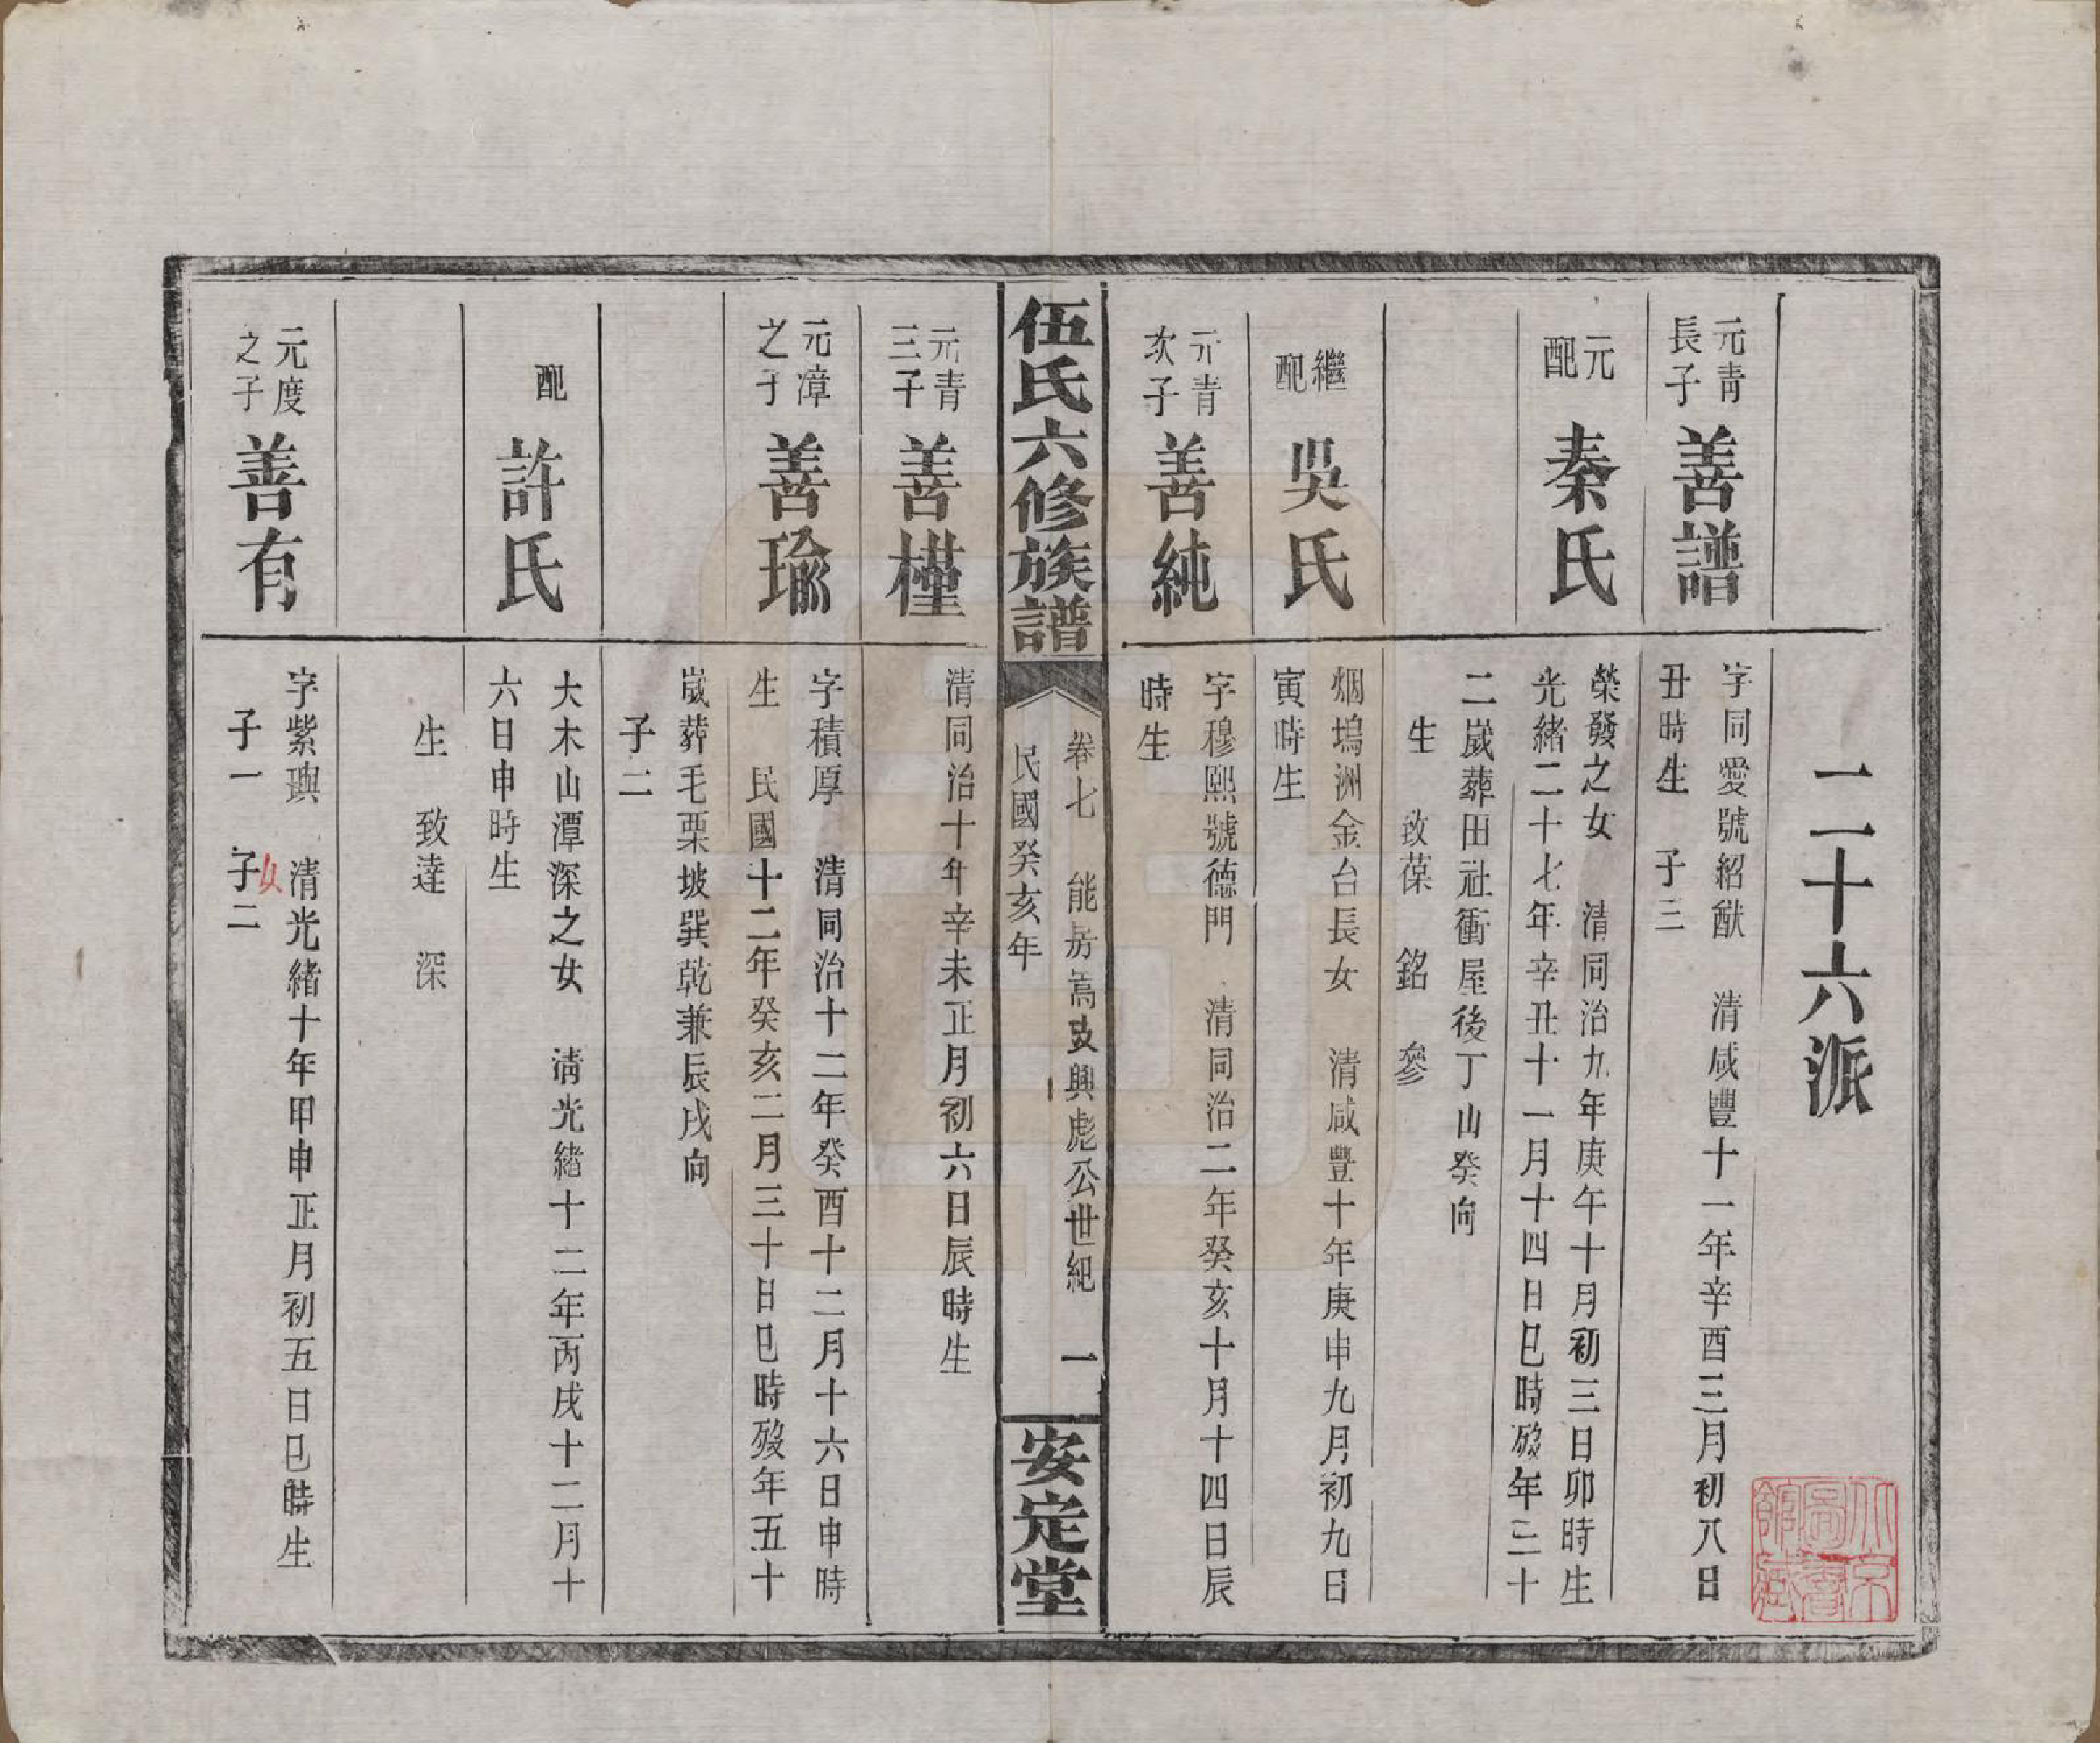 二十六派
元青
長子
善譜
字同愛號紹猷　清咸豐十一年辛酉三月初八日
丑時生　子三
元
配
秦氏
榮發之女　清同治九年庚午十月初三日卯時生
光緒二十七年辛丑十一月十四日巳時歿年三十
二歲葬田社衝屋後丁山癸向
生　致葆　銘　參
繼
配
吳氏
烟塢洲金台長女　清咸豐十年庚申九月初九日
寅時生
元青
次子
善純
字穆熙號德門　清同治二年癸亥十月十四日辰
時生
伍氏六修族譜
卷七　能房嵩改興彪公世紀　一
民國癸亥年
安定堂
元青
三子
善槿
清同治十年辛未正月初六日辰時生
元漳
之子
善瑜
字積厚　清同治十二年癸酉十二月十六日申時
生　民國十二年癸亥二月三十日巳時歿年五十
歲葬毛栗坡巽乾兼辰戌向
子二
配
許氏
大木山潭深之女　清光緒十二年丙戌十二月十
六日申時生
生　致達　深
元度
之子
善有
字紫璵　清光緒十年甲申正月初五日巳時生
子一　子二
女
北京
圖書
館藏